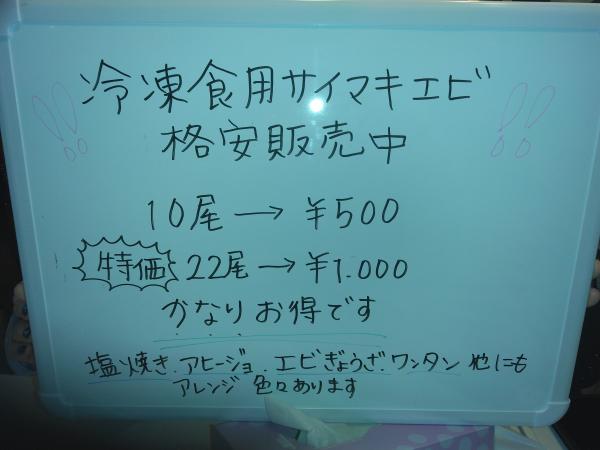 冷凍食用サイマキエビ
格安販売中
!! !!
10尾→¥500
特価 22尾→¥1.000
かなりお得です
塩焼き.アヒージョ.エビぎょうざ.ワンタン 他にも
アレンジ色々あります